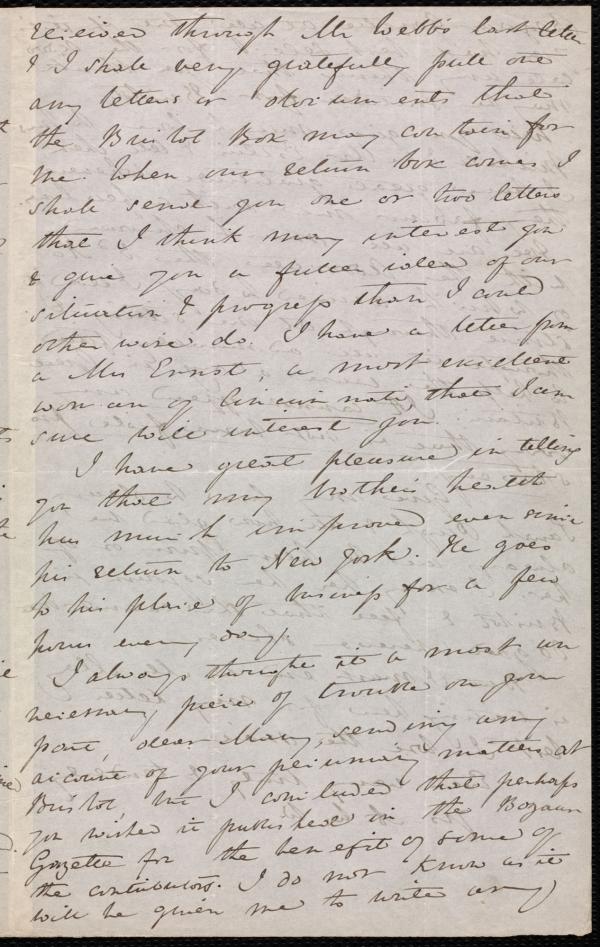 received through Mr Webb's last letter
& I shall very gratefully pull out
any letters or documents that
the Bristol Box may contain for
me. When our return box comes I
shall send you one or two letters
that I think may interest you
& give you a fuller idea of our
situation & progress than I could
otherwise do. I have a letter from
a Mrs Ernst, a most excellent
woman of Cincinnati, that I am
sure will interest you.
I have great pleasure in telling
you that my brother's health
has much improved even since
his return to New York. He goes
to his place of business for a few
hours every day.
I always thought it a most un
necessary piece of trouble on your
part, dear Mary, sending any
account of your pecuniary matters at
Bristol, but I concluded that perhaps
you wished it published in the Bazaar
Gazette for the benefit of some of
the contributors. I do not know as it
will be given me to write any